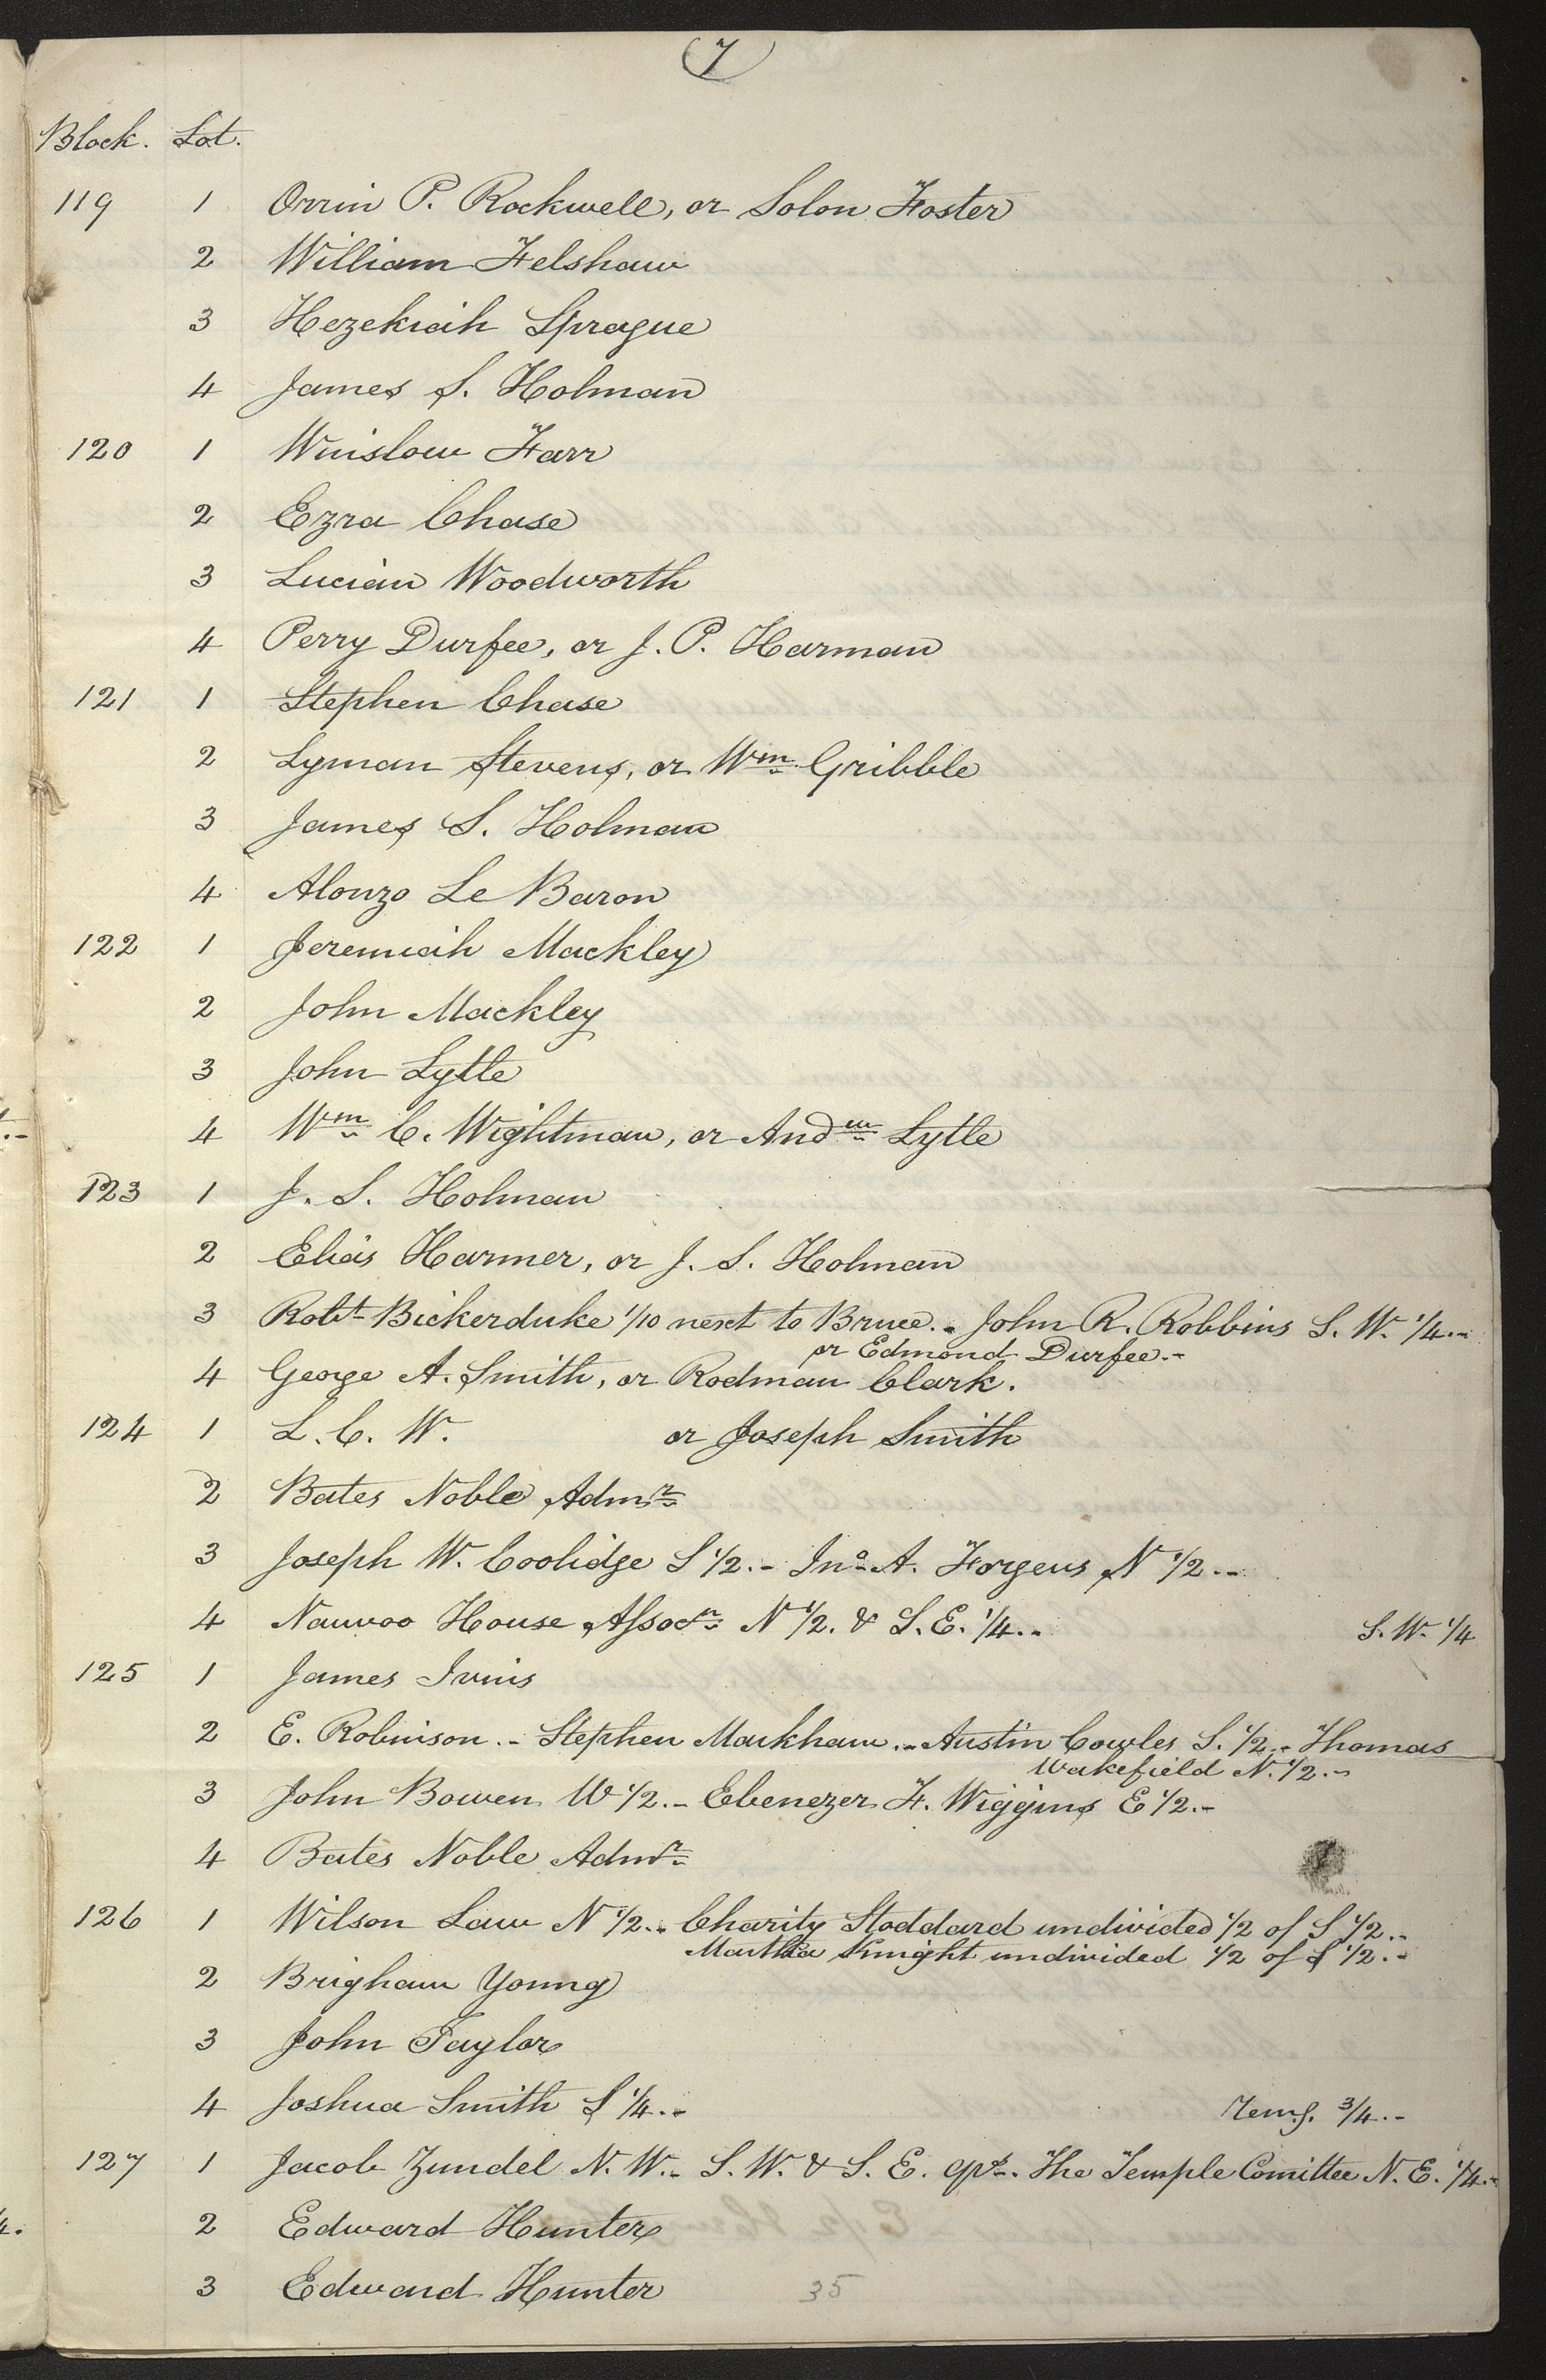 7
Block. Lot.
119 1 Orrin P. Rockwell, or Solon Foster
2 William Felshaw
3 Hezekiah Sprague
4 James S. Holman
120 1 Winslow Farr
2 Ezra Chase
3 Lucian Woodworth
4 Perry Durfee, or J. P. Harman
121 1 Stephen Chase
2 Lyman Stevens, or Wm Gribble
3 James S. Holman
4 Alonzo Le Baron
122 1 Jeremiah Mackley
2 John Mackley
3 John Lytle
4 Wm C. Wightman, or Andw Lytle
123 1 J. S. Holman
2 Elias Harmer, or J. S. Holman
3 Robt Bickerduke 1/10 next to Bruce.- John R. Robbins S. W. 1/4.-
or Edmond Durfee.-
4 George A. Smith, or Rodman Clark.
124 1 L. C. W. or Joseph Smith
2 Bates Noble Admr
3 Joseph W. Coolidge S 1/2.- Jno A. Forgeus N 1/2.-
4 Nauvoo House Assocn N 1/2. & S. E. 1/4.- S. W. 1/4
125 1 James Ivins
2 E. Robinson.- Stephen Markham.- Austin Cowles S. 1/2.- Thomas
Wakefield N. 1/2.-
3 John Bowen W 1/2.- Ebenezer F. Wiggins E 1/2.-
4 Bates Noble Admr
126 1 Wilson Law N 1/2.- Charity Stoddard undivided 1/2 of S 1/2.-
Martha Knight undivided 1/2 of S 1/2.-
2 Brigham Young
3 John Taylor
4 Joshua Smith S 1/4.- 3/4.-
127 1 Jacob Zundel N. W.- S. W. & S. E. qrs.- The Temple Comittee N. E. 1/4.-
2 Edward Hunter
3 Edward Hunter
35